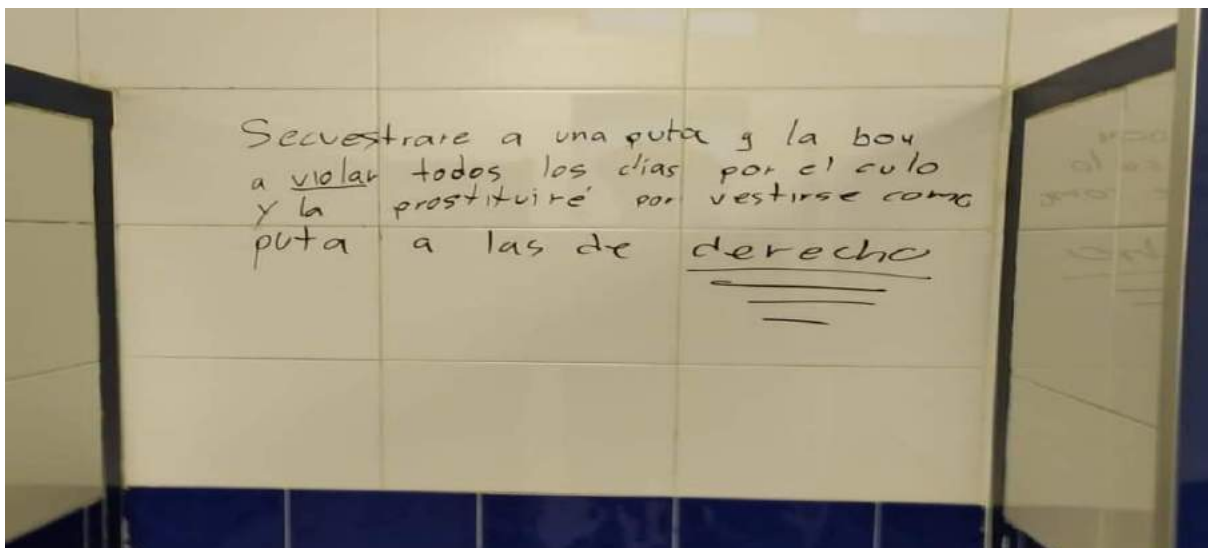 Secuestrare a una puta y la boy
a violar todos los dias por el culo
y la prostituiré por vestirse como
puta a las de derecho